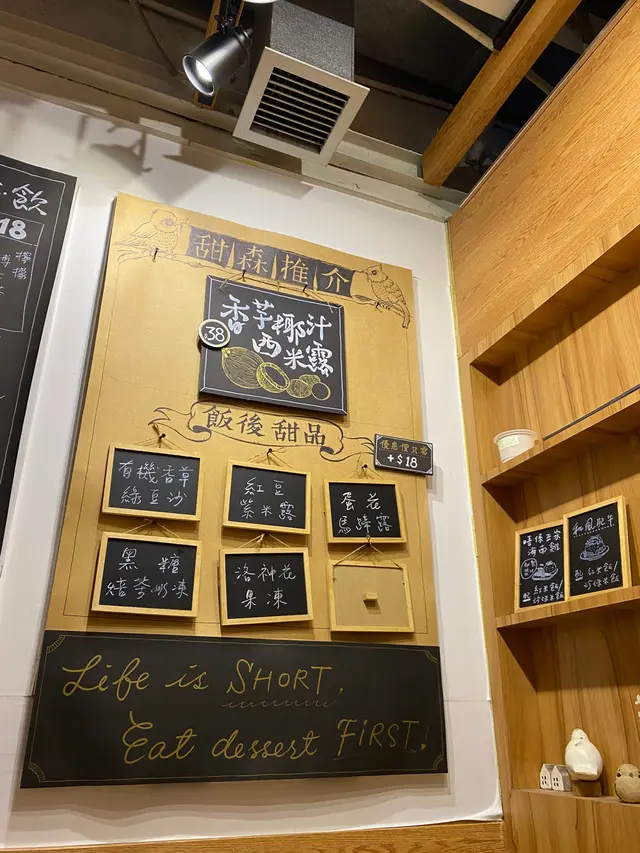 飲
18
甜森推介
香芋椰汁
西米露
38
飯後甜品
優惠價只需
+$18
有機香草
綠豆沙
紅豆
紫米露
蛋花
馬蹄露
黑糖
洛神花
果凍
Life is SHORT.
Eat dessert FIRST!
海南雞
配紅米飯/
和風肥牛
配紅米飯/